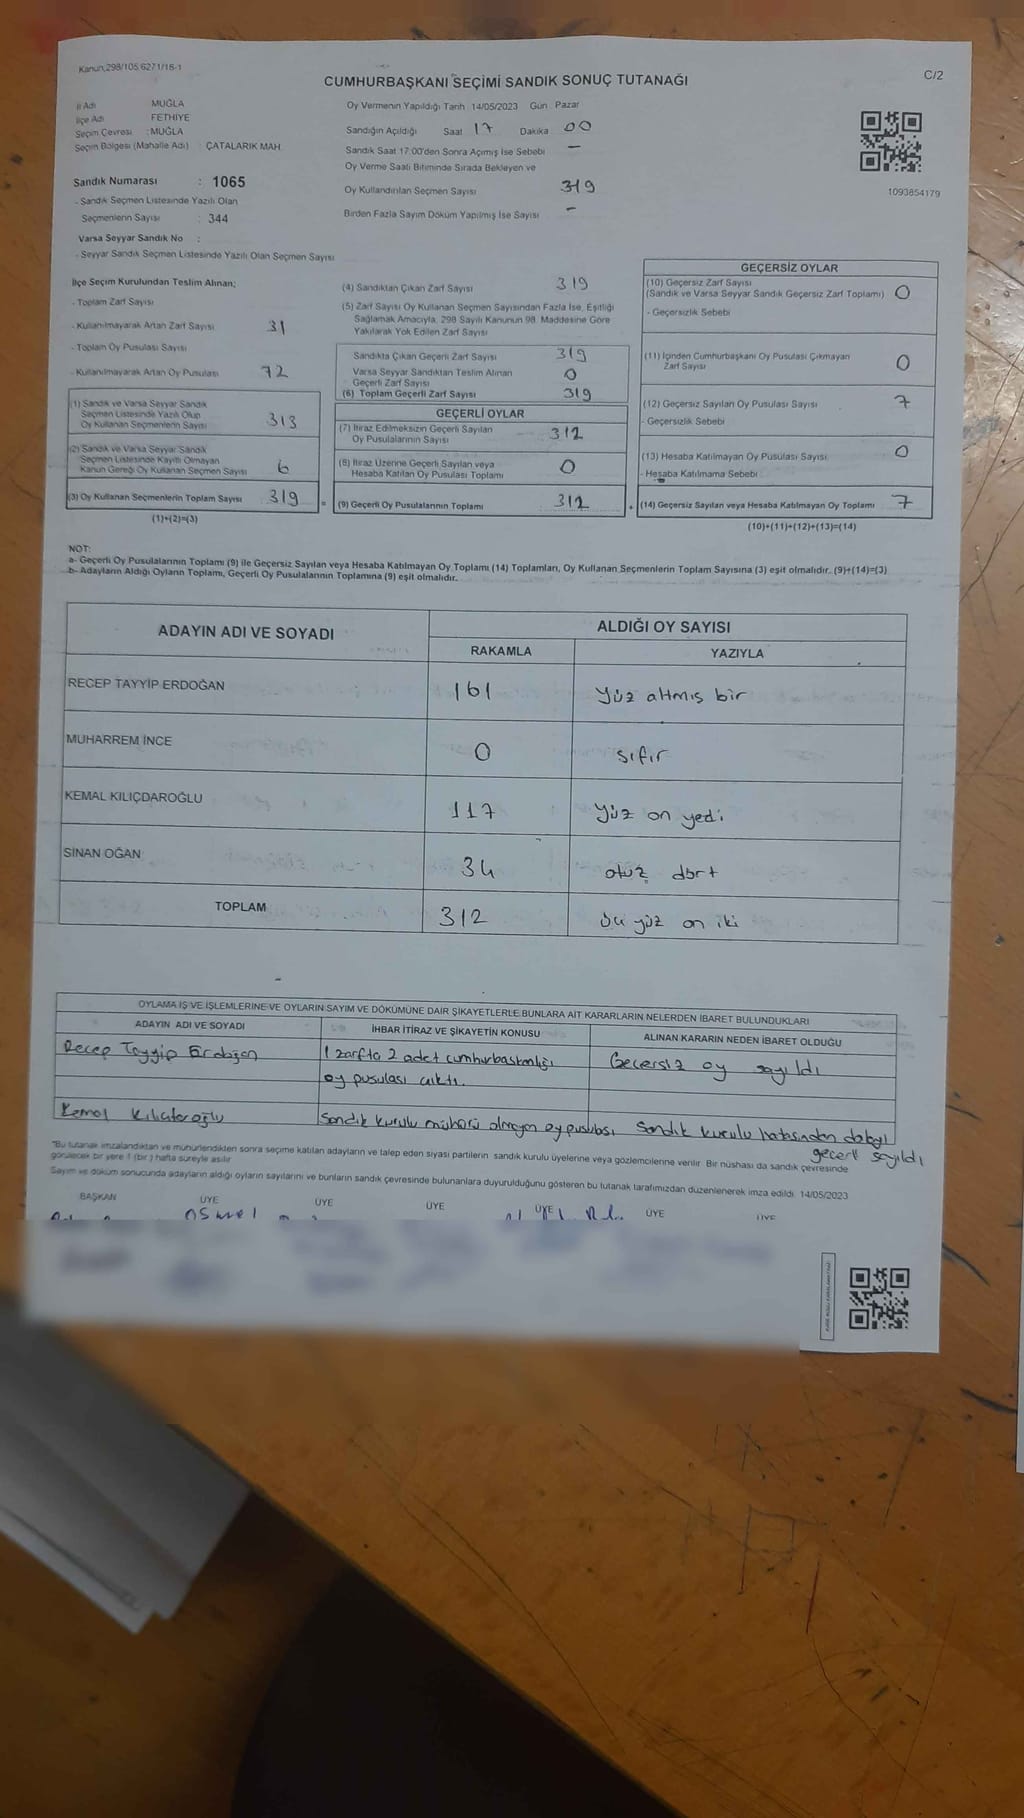 Kanun,298/105,6271/18-1
C/2
CUMHURBAŞKANI SEÇİMİ SANDIK SONUÇ TUTANAĞI
İl Adı MUĞLA
İlçe Adı FETHİYE
Seçim Çevresi : MUĞLA
Seçim Bölgesi (Mahalle Adı) : ÇATALARIK MAH.
Sandık Numarası : 1065
- Sandık Seçmen Listesinde Yazılı Olan
Seçmenlerin Sayısı : 344
Varsa Seyyar Sandık No :
- Seyyar Sandık Seçmen Listesinde Yazılı Olan Seçmen Sayısı
Oy Vermenin Yapıldığı Tarih 14/05/2023 Gün Pazar
Sandığın Açıldığı Saat 17 Dakika 00
Sandık Saat 17:00'den Sonra Açımış İse Sebebi –
Oy Verme Saati Bitiminde Sırada Bekleyen ve
Oy Kullandırılan Seçmen Sayısı 319
Birden Fazla Sayım Döküm Yapılmış İse Sayısı –
1093854179
İlçe Seçim Kurulundan Teslim Alınan;
- Toplam Zarf Sayısı
- Kullanılmayarak Artan Zarf Sayısı 31
- Toplam Oy Pusulası Sayısı
- Kullanılmayarak Artan Oy Pusulası 72
(1) Sandık ve Varsa Seyyar Sandık
Seçmen Listesinde Yazılı Olup
Oy Kullanan Seçmenlerin Sayısı 313
(2) Sandık ve Varsa Seyyar Sandık
Seçmen Listesinde Kayıtlı Olmayan
Kanun Gereği Oy Kullanan Seçmen Sayısı 6
(3) Oy Kullanan Seçmenlerin Toplam Sayısı 319 =
(1)+(2)=(3)
(4) Sandıktan Çıkan Zarf Sayısı 319
(5) Zarf Sayısı Oy Kullanan Seçmen Sayısından Fazla İse, Eşitliği
Sağlamak Amacıyla, 298 Sayılı Kanunun 98. Maddesine Göre
Yakılarak Yok Edilen Zarf Sayısı
Sandıkta Çıkan Geçerli Zarf Sayısı 319
Varsa Seyyar Sandıktan Teslim Alınan
Geçerli Zarf Sayısı 0
(6) Toplam Geçerli Zarf Sayısı 319
GEÇERLİ OYLAR
(7) İtiraz Edilmeksizin Geçerli Sayılan
Oy Pusulalarının Sayısı 312
(8) İtiraz Üzerine Geçerli Sayılan veya
Hesaba Katılan Oy Pusulası Toplamı 0
(9) Geçerli Oy Pusulalarının Toplamı 312 +
GEÇERSİZ OYLAR
(10) Geçersiz Zarf Sayısı
(Sandık ve Varsa Seyyar Sandık Geçersiz Zarf Toplamı) 0
- Geçersizlik Sebebi
(11) İçinden Cumhurbaşkanı Oy Pusulası Çıkmayan
Zarf Sayısı 0
(12) Geçersiz Sayılan Oy Pusulası Sayısı 7
- Geçersizlik Sebebi
(13) Hesaba Katılmayan Oy Pusulası Sayısı 0
- Hesaba Katılmama Sebebi
(14) Geçersiz Sayılan veya Hesaba Katılmayan Oy Toplamı 7
(10)+(11)+(12)+(13)=(14)
NOT:
a- Geçerli Oy Pusulalarının Toplamı (9) ile Geçersiz Sayılan veya Hesaba Katılmayan Oy Toplamı (14) Toplamları, Oy Kullanan Seçmenlerin Toplam Sayısına (3) eşit olmalıdır. (9)+(14)=(3)
b- Adayların Aldığı Oyların Toplamı, Geçerli Oy Pusulalarının Toplamına (9) eşit olmalıdır.
ADAYIN ADI VE SOYADI ALDIĞI OY SAYISI
RAKAMLA YAZIYLA
RECEP TAYYİP ERDOĞAN 161 Yüz altmış bir
MUHARREM İNCE 0 sıfır
KEMAL KILIÇDAROĞLU 117 Yüz on yedi
SİNAN OĞAN 34 otuz dört
TOPLAM 312 üç yüz on iki
OYLAMA İŞ VE İŞLEMLERİNE VE OYLARIN SAYIM VE DÖKÜMÜNE DAİR ŞİKAYETLERLE BUNLARA AİT KARARLARIN NELERDEN İBARET BULUNDUKLARI
ADAYIN ADI VE SOYADI İHBAR İTİRAZ VE ŞİKAYETİN KONUSU ALINAN KARARIN NEDEN İBARET OLDUĞU
Recep Tayyip Erdoğan 1 zarfta 2 adet cumhurbaşkanlığı Geçersiz oy sayıldı
oy pusulası çıktı.
Kemal Kılıçdaroğlu Sandık kurulu mührü olmayan oy pusulası Sandık kurulu hatasından dolayı
geçerli sayıldı
"Bu tutanak imzalandıktan ve mühürlendikten sonra seçime katılan adayların ve talep eden siyasi partilerin sandık kurulu üyelerine veya gözlemcilerine verilir. Bir nüshası da sandık çevresinde
görülecek bir yere 1 (bir) hafta süreyle asılır.
Sayım ve döküm sonucunda adayların aldığı oyların sayılarını ve bunların sandık çevresinde bulunanlara duyurulduğunu gösteren bu tutanak tarafımızdan düzenlenerek imza edildi. 14/05/2023
BAŞKAN ÜYE ÜYE ÜYE ÜYE ÜYE ÜYE